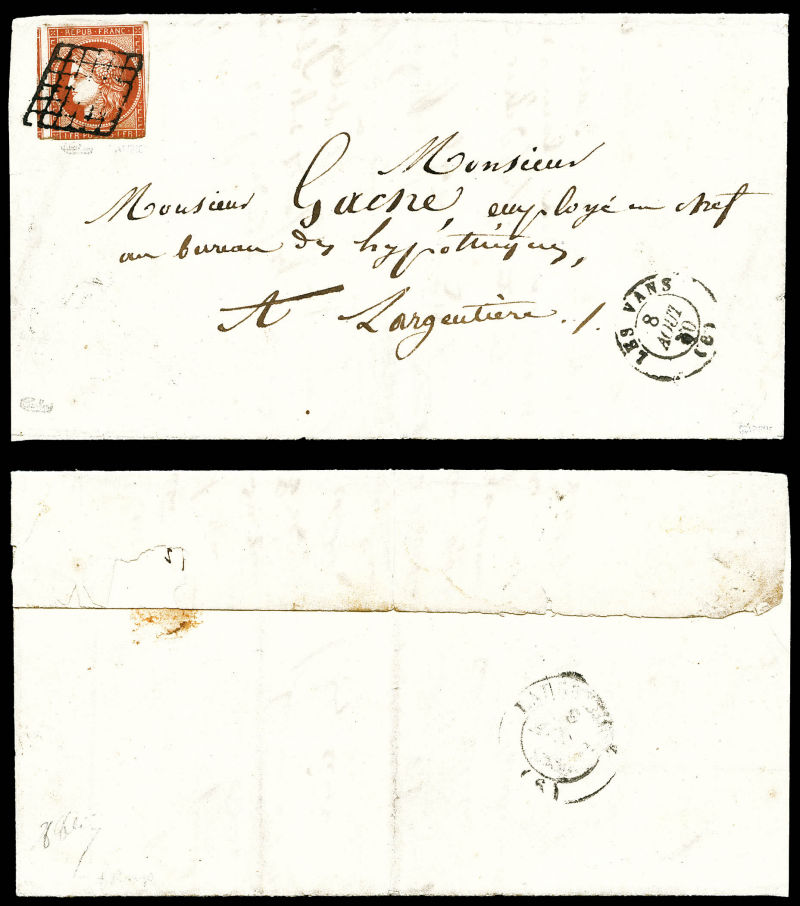 REPUB. FRANC.
1 FR POSTES 1 FR
Monsieur
Monsieur Gache, employé en chef
au bureau des hypothèques,
A Largentière.
LES VANS
8
AOUT
50
(6)
(6)